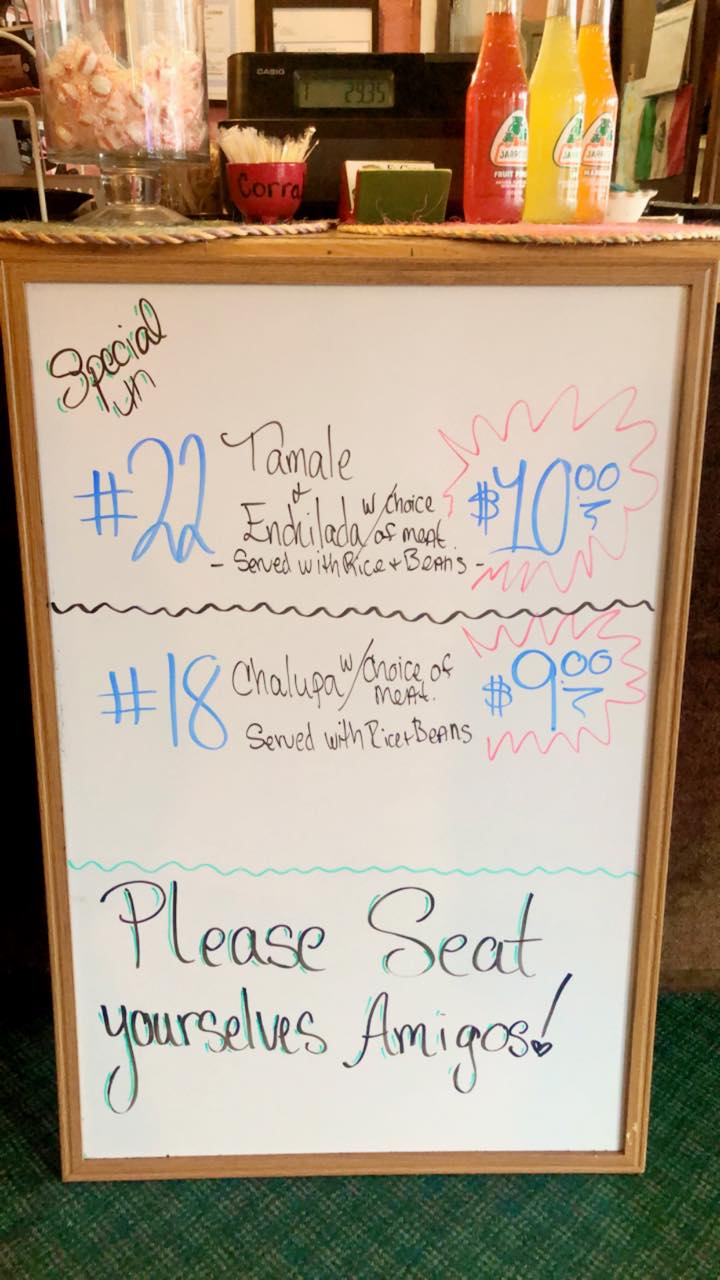 CASIO
29.35
Corra
JARR
FRUIT PUN
JARR
JARR
Special
#22 Tamale
&
Enchilada w/choice
of meat.
- Served with Rice + Beans -
$10.00
#18 Chalupa w/choice of
meat.
Served with Rice + Beans
$9.00
Please Seat
yourselves Amigos!